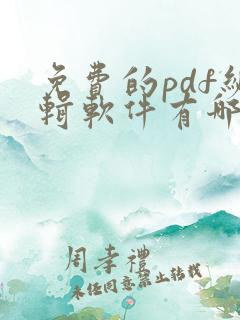 免費的pdf編
輯軟件有哪
周幸禮
未經同意禁止轉載